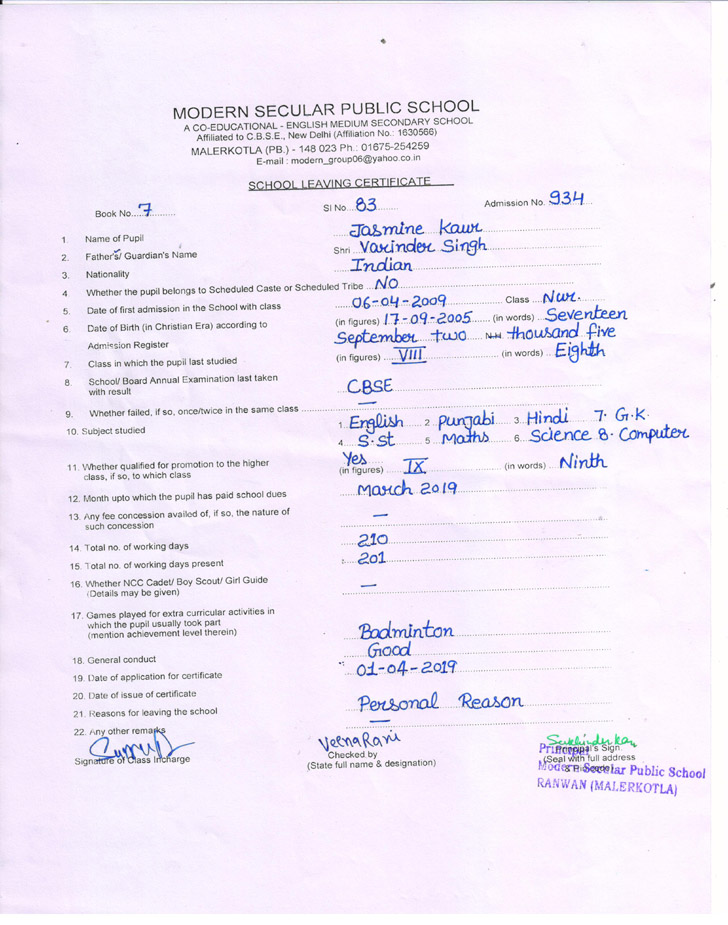 MODERN SECULAR PUBLIC SCHOOL
A CO-EDUCATIONAL - ENGLISH MEDIUM SECONDARY SCHOOL
Affiliated to C.B.S.E., New Delhi (Affiliation No.: 1630566)
MALERKOTLA (PB.) - 148 023 Ph.: 01675-254259
E-mail : modern_group06@yahoo.co.in
SCHOOL LEAVING CERTIFICATE
Book No. 7 Sl No. 83 Admission No. 934
1. Name of Pupil Jasmine Kaur
2. Father's/ Guardian's Name Shri Varinder Singh
3. Nationality Indian
4. Whether the pupil belongs to Scheduled Caste or Scheduled Tribe NO
5. Date of first admission in the School with class 06-04-2009 Class Nur.
6. Date of Birth (in Christian Era) according to (in figures) 17-09-2005 (in words) Seventeen
Admission Register September two thousand five
7. Class in which the pupil last studied (in figures) VIII (in words) Eighth
8. School/ Board Annual Examination last taken
with result CBSE
9. Whether failed, if so, once/twice in the same class —
10. Subject studied 1. English 2. Punjabi 3. Hindi 7. G.K.
4. S.st 5. Maths 6. Science 8. Computer
11. Whether qualified for promotion to the higher Yes
class, if so, to which class (in figures) IX (in words) Ninth
12. Month upto which the pupil has paid school dues March 2019
13. Any fee concession availed of, if so, the nature of
such concession —
14. Total no. of working days 210
15. Total no. of working days present 201
16. Whether NCC Cadet/ Boy Scout/ Girl Guide
(Details may be given) —
17. Games played for extra curricular activities in
which the pupil usually took part
(mention achievement level therein) Badminton
18. General conduct Good
19. Date of application for certificate 01-04-2019
20. Date of issue of certificate
21. Reasons for leaving the school Personal Reason
22. Any other remarks —
Signature of Class Incharge
Veena Rani
Checked by
(State full name & designation)
Principal's Sign.
(Seal with full address
Principal
Modern Secular Public School
RANWAN (MALERKOTLA)